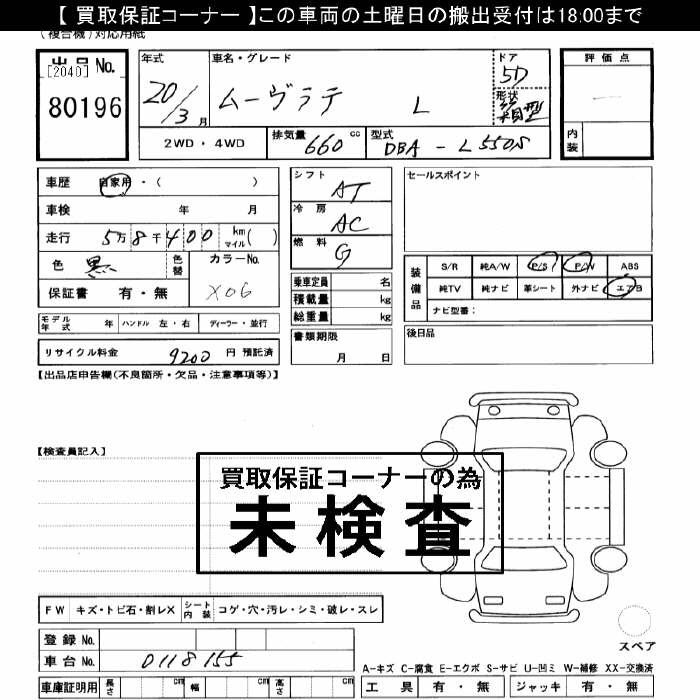 【 買取保証コーナー 】この車両の土曜日の搬出受付は18:00まで
(複合機)対応用紙
出品 No.
[2040]
80196
年式
20/3月
車名・グレード
ムーヴラテ L
ドア
5D
形状
箱型
評価点
内装
2WD・4WD
排気量
660 cc
型式
DBA - L550S
車歴 自家用・( )
車検 年 月
走行 5万8千400 km マイル( )
色 黒 色替
カラーNo.
X06
保証書 有・無
シフト AT
冷房 AC
燃料 G
乗車定員 名
積載量 kg
総重量 kg
書類期限
月 日
セールスポイント
装備品
S/R 純A/W P/S P/W ABS
純TV 純ナビ 革シート 外ナビ エアB
ナビ型番:
後日品
モデル年式 年 ハンドル 左・右 ディーラー・並行
リサイクル料金 9200 円 預託済
【出品店申告欄(不良箇所・欠品・注意事項等)】
【検査員記入】
買取保証コーナーの為
未検査
FW キズ・トビ石・割レX シート内装 コゲ・穴・汚レ・シミ・破レ・スレ
登録 No.
車台 No. 0118155
車庫証明用 長さ cm 幅 cm 高さ cm
スペア
A-キズ C-腐食 E-エクボ S-サビ U-凹ミ W-補修 XX-交換済
工具 有・無 ジャッキ 有・無